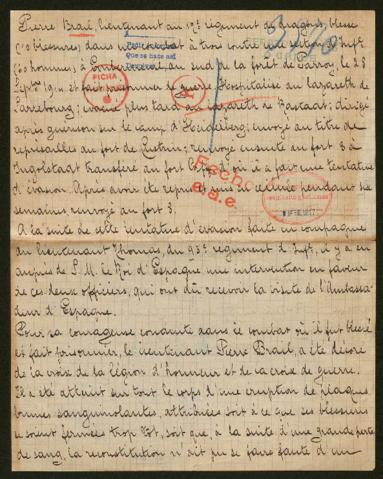 Pierre Brail, lieutenant au régiment de dragons, blessé
(10 blessures) dans un combat à trois contre une section d'Inft.
(60 hommes), à au sud de la forêt de Parroy, le 28
Septbre 1914 et fait prisonnier de guerre. Hospitalisé au lazareth de
Sarrebourg; évacué plus tard au lazareth de Rastadt; dirigé
après guérison sur le camp d'Heidelberg; envoyé au titre de
représailles au fort de Custrin; renvoyé ensuite au fort 3 à
Ingolstadt transféré au fort où il a fait une tentative
d'évasion. Après avoir été repris et mis en cellule pendant six
semaines, renvoyé au fort 3.
A la suite de cette tentative d'évasion faite en compagnie
du lieutenant Thomas, du 93e régiment d'Inft., il y a eu
auprès de S.M. le Roi d'Espagne une intervention en faveur
de ces deux officiers, qui ont dû recevoir la visite de l'Ambassa-
deur d'Espagne.
Pour sa courageuse conduite dans le combat où il fut blessé
et fait prisonnier, le lieutenant Pierre Brail, a été décoré
de la croix de la légion d'honneur et de la croix de guerre.
Il a été atteint sur tout le corps d'une éruption de plaques
brunes sanguinolantes, attribuées soit à ce que ses blessures
se soient fermées trop tôt, soit que, à la suite d'une grande perte
de sang, la reconstitution n'ait pu se faire faute d'un
FICHA
Fecho
a.a.e.